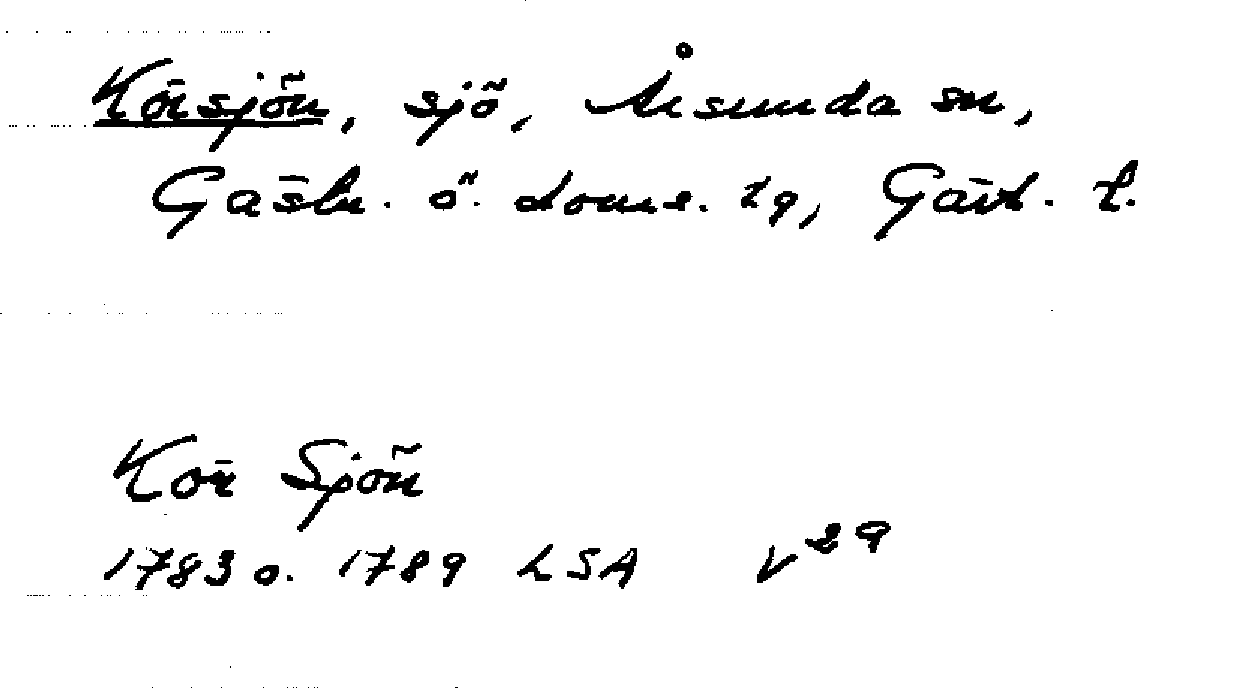 Korsjön, sjö, Årsunda sn,
Gästr. ö. doms. tg, Gävl. l.
Kor Sjön
1783 o. 1789 LSA V 29